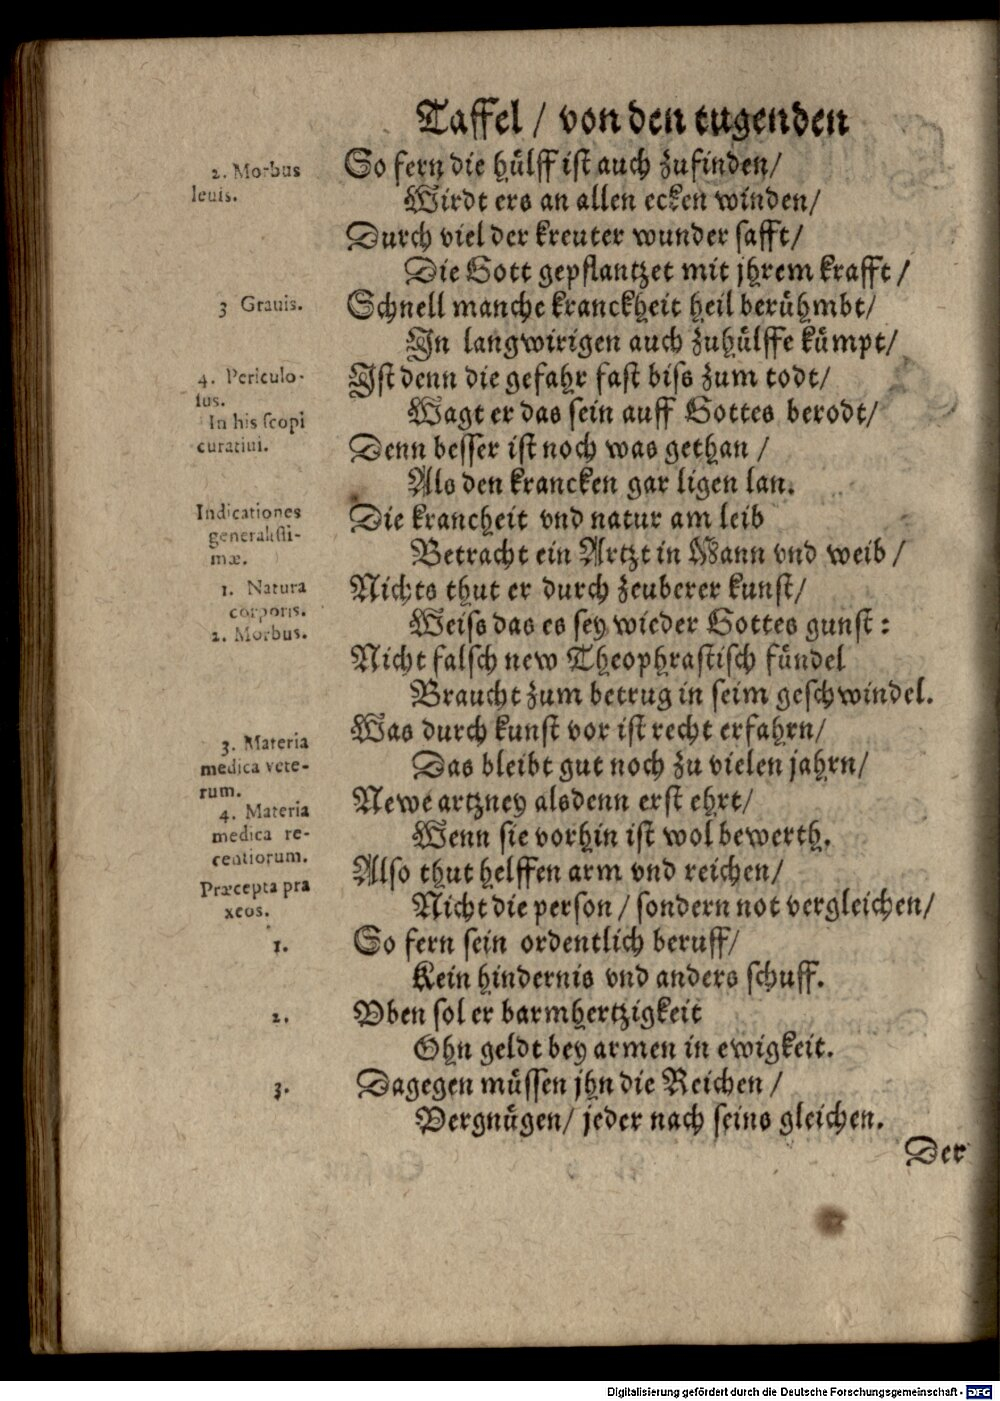 Taffel / von den tugenden
2. Morbus
leuis.
So fern die hülff ist auch zufinden/
Wirdt ers an allen ecken winden/
Durch viel der kreuter wunder safft/
Die Gott gepflantzet mit jhrem krafft /
3 Grauis.
Schnell manche kranckheit heil berühmbt/
In langwirigen auch zuhülffe kümpt/
4. Periculo-
sus.
Ist denn die gefahr fast biss zum todt/
In his scopi
curatiui.
Wagt er das sein auff Gottes berodt/
Denn besser ist noch was gethan /
Als den krancken gar ligen lan.
Indicationes
generalissi-
mæ.
Die krancheit vnd natur am leib
Betracht ein Artzt in Mann vnd weib /
1. Natura
corporis.
2. Morbus.
Nichts thut er durch zeuberer kunst/
Weiss das es sey wieder Gottes gunst :
Nicht falsch new Theophrastisch fündel
Braucht zum betrug in seim geschwindel.
3. Materia
medica vete-
rum.
Was durch kunst vor ist recht erfahrn/
Das bleibt gut noch zu vielen jahrn/
4. Materia
medica re-
centiorum.
Newe artzney alsdenn erst ehrt/
Wenn sie vorhin ist wol bewerth.
Præcepta pra
xeos.
Also thut helffen arm vnd reichen/
Nicht die person / sondern not vergleichen/
1.
So fern sein ordentlich beruff/
Kein hindernis vnd anders schuff.
2.
Vben sol er barmhertzigkeit
Ohn geldt bey armen in ewigkeit.
3.
Dagegen müssen jhn die Reichen /
Vergnügen/ jeder nach seins gleichen.
Der
Digitalisierung gefördert durch die Deutsche Forschungsgemeinschaft - DFG